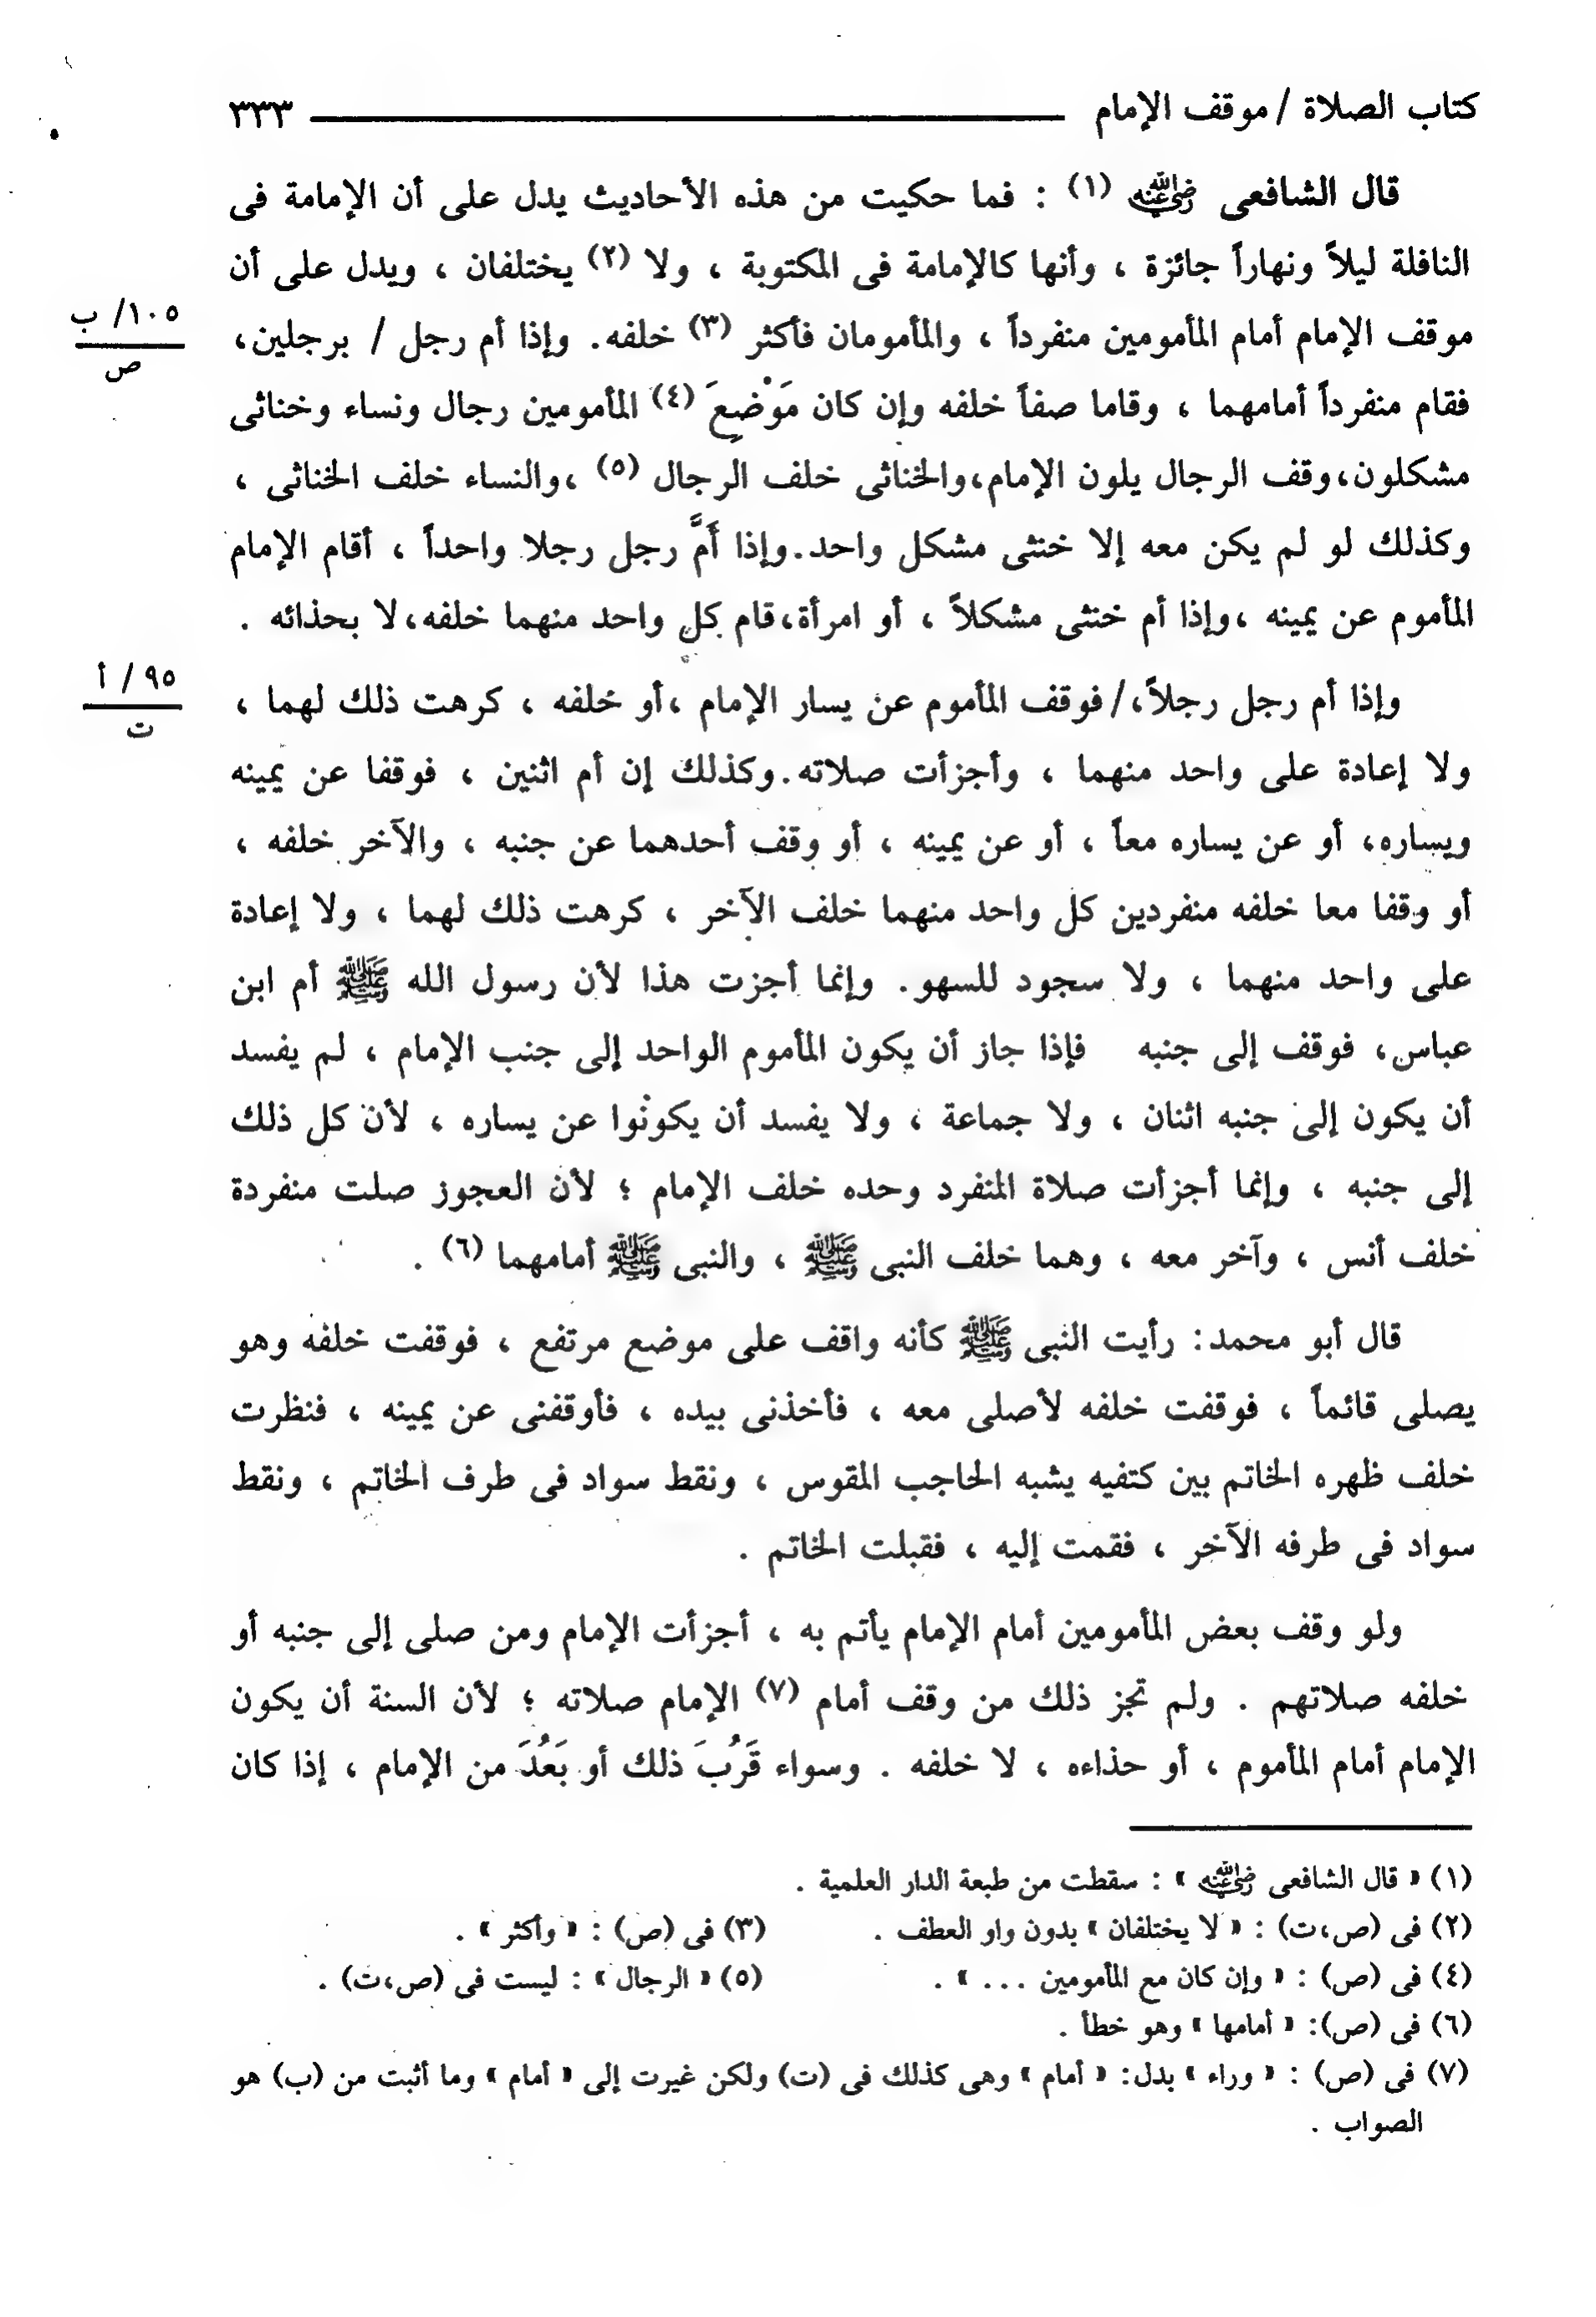 كتاب الصلاة / موقف الإمام ٣٣٣
قال الشافعى رضي الله عنه (١) : فما حكيت من هذه الأحاديث يدل على أن الإمامة فى
النافلة ليلاً ونهاراً جائزة ، وأنها كالإمامة فى المكتوبة ، ولا (٢) يختلفان ، ويدل على أن
موقف الإمام أمام المأمومين منفرداً ، والمأمومان فأكثر (٣) خلفه. وإذا أم رجل / برجلين،
١٠٥/ ب
ص
فقام منفرداً أمامهما ، وقاما صفاً خلفه وإن كان مَوْضِعَ (٤) المأمومين رجال ونساء وخناثى
مشكلون،وقف الرجال يلون الإمام،والخناثى خلف الرجال (٥) ،والنساء خلف الخناثى ،
وكذلك لو لم يكن معه إلا خنثى مشكل واحد.وإذا أَمَّ رجل رجلا واحداً ، أقام الإمام
المأموم عن يمينه ،وإذا أم خنثى مشكلاً ، أو امرأة،قام كل واحد منهما خلفه،لا بحذائه .
وإذا أم رجل رجلاً،/ فوقف المأموم عن يسار الإمام ،أو خلفه ، كرهت ذلك لهما ،
٩٥ / أ
ت
ولا إعادة على واحد منهما ، وأجزأت صلاته.وكذلك إن أم اثنين ، فوقفا عن يمينه
ويساره، أو عن يساره معاً ، أو عن يمينه ، أو وقف أحدهما عن جنبه ، والآخر خلفه ،
أو وقفا معا خلفه منفردين كل واحد منهما خلف الآخر ، كرهت ذلك لهما ، ولا إعادة
على واحد منهما ، ولا سجود للسهو. وإنما أجزت هذا لأن رسول الله ﷺ أم ابن
عباس، فوقف إلى جنبه فإذا جاز أن يكون المأموم الواحد إلى جنب الإمام ، لم يفسد
أن يكون إلى جنبه اثنان ، ولا جماعة ، ولا يفسد أن يكونوا عن يساره ، لأن كل ذلك
إلى جنبه ، وإنما أجزأت صلاة المنفرد وحده خلف الإمام ؛ لأن العجوز صلت منفردة
خلف أنس ، وآخر معه ، وهما خلف النبى ﷺ ، والنبى ﷺ أمامهما (٦) .
قال أبو محمد: رأيت النبى ﷺ كأنه واقف على موضع مرتفع ، فوقفت خلفه وهو
يصلى قائماً ، فوقفت خلفه لأصلى معه ، فأخذنى بيده ، فأوقفنى عن يمينه ، فنظرت
خلف ظهره الخاتم بين كتفيه يشبه الحاجب المقوس ، ونقط سواد فى طرف الخاتم ، ونقط
سواد فى طرفه الآخر ، فقمت إليه ، فقبلت الخاتم .
ولو وقف بعض المأمومين أمام الإمام يأتم به ، أجزأت الإمام ومن صلى إلى جنبه أو
خلفه صلاتهم . ولم تجز ذلك من وقف أمام (٧) الإمام صلاته ؛ لأن السنة أن يكون
الإمام أمام المأموم ، أو حذاءه ، لا خلفه . وسواء قَرُبَ ذلك أو بَعُدَ من الإمام ، إذا كان
(١) « قال الشافعى رضي الله عنه » : سقطت من طبعة الدار العلمية .
(٢) فى (ص،ت) : « لا يختلفان » بدون واو العطف . (٣) فى (ص) : « وأكثر » .
(٤) فى (ص) : « وإن كان مع المأمومين ... » . (٥) « الرجال » : ليست فى (ص،ت) .
(٦) فى (ص): « أمامها » وهو خطأ .
(٧) فى (ص) : « وراء » بدل: « أمام » وهى كذلك فى (ت) ولكن غيرت إلى « أمام » وما أثبت من (ب) هو
الصواب .